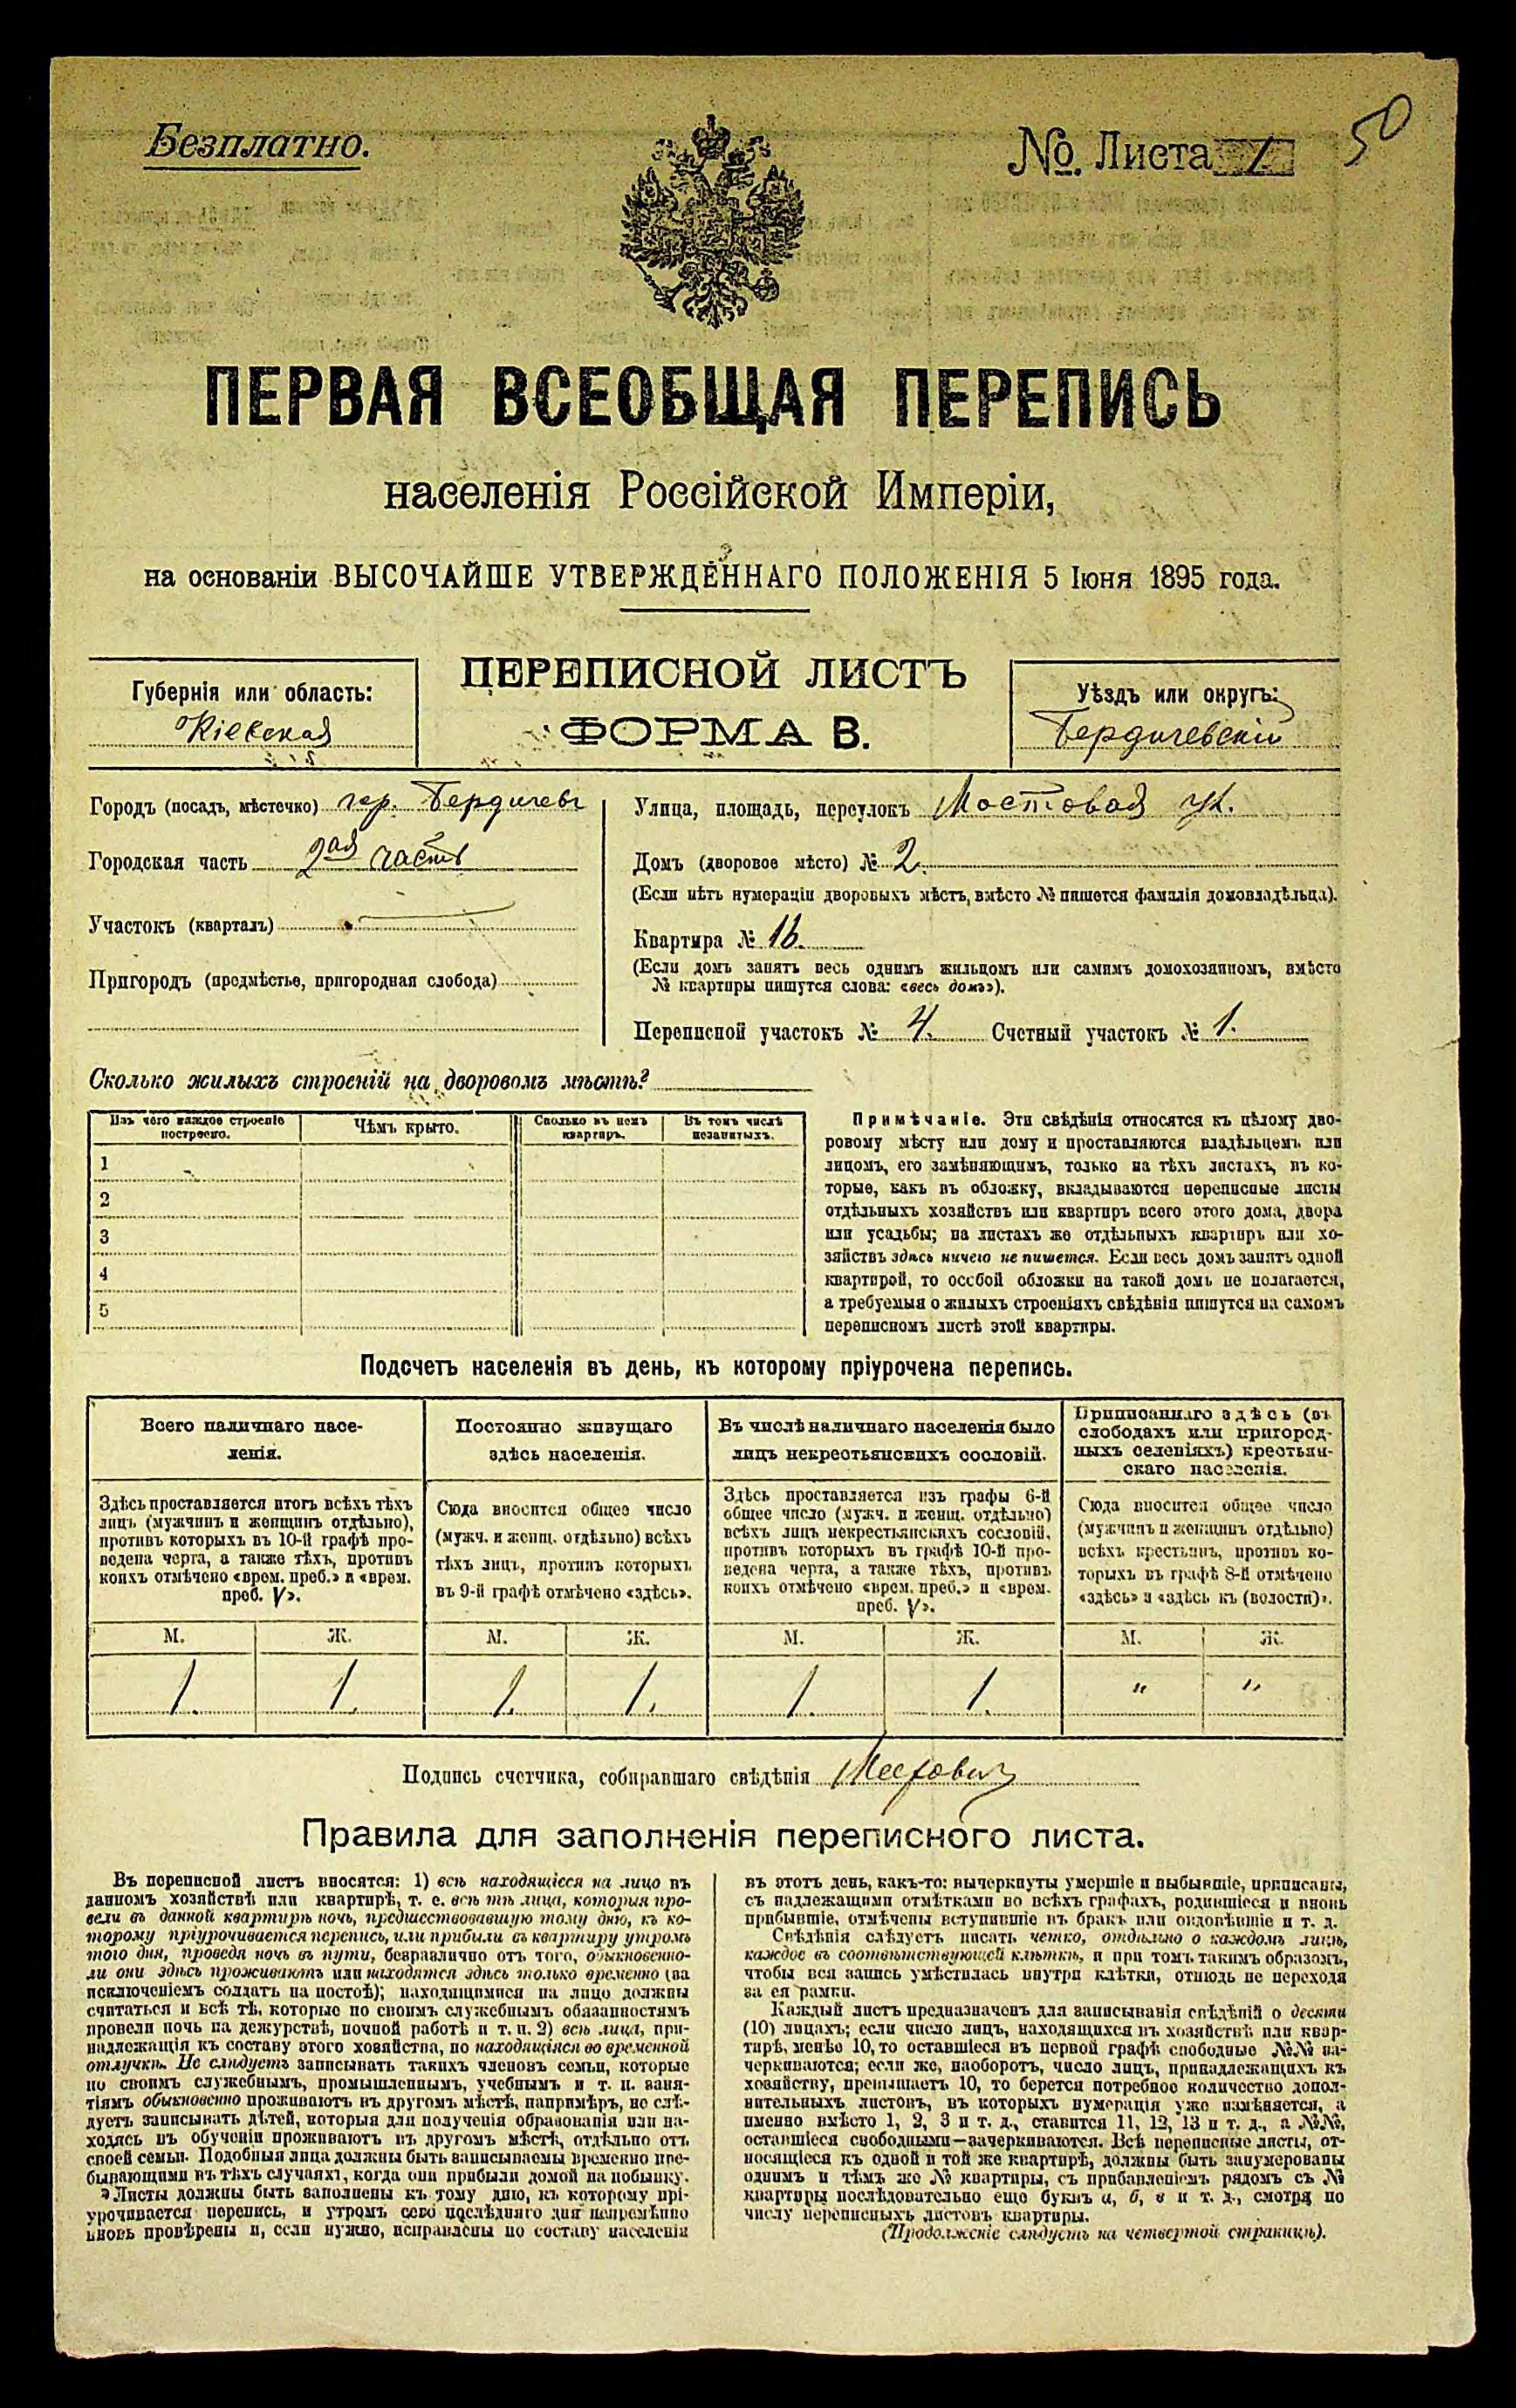 Безплатно.
№. Листа 1
50
ПЕРВАЯ ВСЕОБЩАЯ ПЕРЕПИСЬ
населенія Россійской Имперіи,
на основаніи ВЫСОЧАЙШЕ УТВЕРЖДЕННАГО ПОЛОЖЕНІЯ 5 Іюня 1895 года.
Губернія или область:
Кіевская
ПЕРЕПИСНОЙ ЛИСТЪ
ФОРМА В.
Уѣздъ или округъ:
Бердичевскій
Городъ (посадъ, мѣстечко) гор. Бердичевъ
Городская часть 2ая часть
Участокъ (кварталъ)
Пригородъ (предмѣстье, пригородная слобода)
Улица, площадь, переулокъ Мостовая ул.
Домъ (дворовое мѣсто) № 2.
(Если нѣтъ нумераціи дворовыхъ мѣстъ, вмѣсто № пишется фамилія домовладѣльца).
Квартира № 16.
(Если домъ занятъ весь однимъ жильцомъ или самимъ домохозяиномъ, вмѣсто
№ квартиры пишутся слова: «весь домъ»).
Переписной участокъ № 4. Счетный участокъ № 1.
Сколько жилыхъ строеній на дворовомъ мѣстѣ?
Изъ чего каждое строеніе
построено.
Чѣмъ крыто.
Сколько въ немъ
квартиръ.
Въ томъ числѣ
незанятыхъ.
1
2
3
4
5
Примѣчаніе. Эти свѣдѣнія относятся къ цѣлому дво-
ровому мѣсту или дому и проставляются владѣльцемъ или
лицомъ, его замѣняющимъ, только на тѣхъ листахъ, въ ко-
торые, какъ въ обложку, вкладываются переписные листы
отдѣльныхъ хозяйствъ или квартиръ всего этого дома, двора
или усадьбы; на листахъ же отдѣльныхъ квартиръ или хо-
зяйствъ здѣсь ничего не пишется. Если весь домъ занятъ одной
квартирой, то особой обложки на такой домъ не полагается,
а требуемыя о жилыхъ строеніяхъ свѣдѣнія пишутся на самомъ
переписномъ листѣ этой квартиры.
Подсчетъ населенія въ день, къ которому пріурочена перепись.
Всего наличнаго насе-
ленія.
Здѣсь проставляется итогъ всѣхъ тѣхъ
лицъ (мужчинъ и женщинъ отдѣльно),
противъ которыхъ въ 10-й графѣ про-
ведена черта, а также тѣхъ, противъ
коихъ отмѣчено «врем. преб.» и «врем.
преб. V».
Постоянно живущаго
здѣсь населенія.
Сюда вносится общее число
(мужч. и женщ. отдѣльно) всѣхъ
тѣхъ лицъ, противъ которыхъ
въ 9-й графѣ отмѣчено «здѣсь».
Въ числѣ наличнаго населенія было
лицъ некрестьянскихъ сословій.
Здѣсь проставляется изъ графы 6-й
общее число (мужч. и женщ. отдѣльно)
всѣхъ лицъ некрестьянскихъ сословій,
противъ которыхъ въ графѣ 10-й про-
ведена черта, а также тѣхъ, противъ
коихъ отмѣчено «врем. преб.» и «врем.
преб. V».
Приписаннаго здѣсь (въ
слободахъ или пригород-
ныхъ селеніяхъ) крестьян-
скаго населенія.
Сюда вносится общее число
(мужчинъ и женщинъ отдѣльно)
всѣхъ крестьянъ, противъ ко-
торыхъ въ графѣ 8-й отмѣчено
«здѣсь» и «здѣсь къ (волости)».
М. Ж. М. Ж. М. Ж. М. Ж.
1. 1. 1. 1. 1. 1. " "
Подпись счетчика, собиравшаго свѣдѣнія
Правила для заполненія переписного листа.
Въ переписной листъ вносятся: 1) всѣ находящіеся на лицо въ
данномъ хозяйствѣ или квартирѣ, т. е. всѣ тѣ лица, которыя про-
вели въ данной квартирѣ ночь, предшествовавшую тому дню, къ ко-
торому пріурочивается перепись, или прибыли въ квартиру утромъ
того дня, проведя ночь въ пути, безразлично отъ того, обыкновенно-
ли они здѣсь проживаютъ или находятся здѣсь только временно (за
исключеніемъ солдатъ на постоѣ); находящимися на лицо должны
считаться и всѣ тѣ, которые по своимъ служебнымъ обязанностямъ
провели ночь на дежурствѣ, ночной работѣ и т. п. 2) всѣ лица, при-
надлежащія къ составу этого хозяйства, но находящіяся во временной
отлучкѣ. Не слѣдуетъ записывать такихъ членовъ семьи, которые
по своимъ служебнымъ, промышленнымъ, учебнымъ и т. п. заня-
тіямъ обыкновенно проживаютъ въ другомъ мѣстѣ, напримѣръ, не слѣ-
дуетъ записывать дѣтей, которыя для полученія образованія или на-
ходясь въ обученіи проживаютъ въ другомъ мѣстѣ, отдѣльно отъ
своей семьи. Подобныя лица должны быть записываемы временно пре-
бывающими въ тѣхъ случаяхъ, когда они прибыли домой на побывку.
Листы должны быть заполнены къ тому дню, къ которому прі-
урочивается перепись, и утромъ сего послѣдняго дня непремѣнно
вновь провѣрены и, если нужно, исправлены по составу населенія
въ этотъ день, какъ-то: вычеркнуты умершіе и выбывшіе, приписаны,
съ надлежащими отмѣтками во всѣхъ графахъ, родившіеся и вновь
прибывшіе, отмѣчены вступившіе въ бракъ или овдовѣвшіе и т. д.
Свѣдѣнія слѣдуетъ писать четко, отдѣльно о каждомъ лицѣ,
каждое въ соотвѣтствующей клѣткѣ, и при томъ такимъ образомъ,
чтобы вся запись умѣстилась внутри клѣтки, отнюдь не переходя
за ея рамки.
Каждый листъ предназначенъ для записыванія свѣдѣній о десяти
(10) лицахъ; если число лицъ, находящихся въ хозяйствѣ или квар-
тирѣ, менѣе 10, то оставшіеся въ первой графѣ свободные №№ за-
черкиваются; если же, наоборотъ, число лицъ, принадлежащихъ къ
хозяйству, превышаетъ 10, то берется потребное количество допол-
нительныхъ листовъ, въ которыхъ нумерація уже измѣняется, а
именно вмѣсто 1, 2, 3 и т. д., ставится 11, 12, 13 и т. д., а №№,
оставшіеся свободными—зачеркиваются. Всѣ переписные листы, от-
носящіеся къ одной и той же квартирѣ, должны быть занумерованы
однимъ и тѣмъ же № квартиры, съ прибавленіемъ рядомъ съ №
квартиры послѣдовательно еще буквъ а, б, в и т. д., смотря по
числу переписныхъ листовъ квартиры.
(Продолженіе слѣдуетъ на четвертой страницѣ).